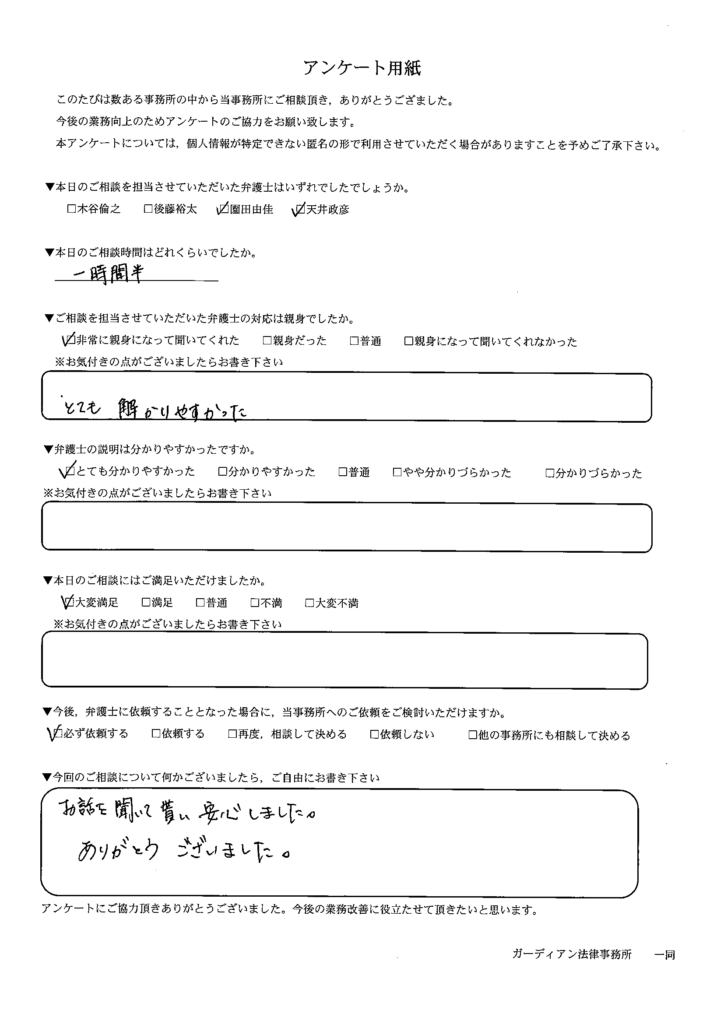 アンケート用紙
このたびは数ある事務所の中から当事務所にご相談頂き，ありがとうございました。
今後の業務向上のためアンケートのご協力をお願い致します。
本アンケートについては，個人情報が特定できない匿名の形で利用させていただく場合がありますことを予めご了承下さい。
▼本日のご相談を担当させていただいた弁護士はいずれでしたでしょうか。
□木谷倫之　□後藤裕太　☑園田由佳　☑天井政彦
▼本日のご相談時間はどれくらいでしたか。
一時間半
▼ご相談を担当させていただいた弁護士の対応は親身でしたか。
☑非常に親身になって聞いてくれた　□親身だった　□普通　□親身になって聞いてくれなかった
※お気付きの点がございましたらお書き下さい
とても 解かりやすかった
▼弁護士の説明は分かりやすかったですか。
☑とても分かりやすかった　□分かりやすかった　□普通　□やや分かりづらかった　□分かりづらかった
※お気付きの点がございましたらお書き下さい
▼本日のご相談にはご満足いただけましたか。
☑大変満足　□満足　□普通　□不満　□大変不満
※お気付きの点がございましたらお書き下さい
▼今後，弁護士に依頼することとなった場合に，当事務所へのご依頼をご検討いただけますか。
☑必ず依頼する　□依頼する　□再度，相談して決める　□依頼しない　□他の事務所にも相談して決める
▼今回のご相談について何かございましたら，ご自由にお書き下さい
お話を聞いて貰い安心しました。
ありがとうございました。
アンケートにご協力頂きありがとうございました。今後の業務改善に役立たせて頂きたいと思います。
ガーディアン法律事務所　一同